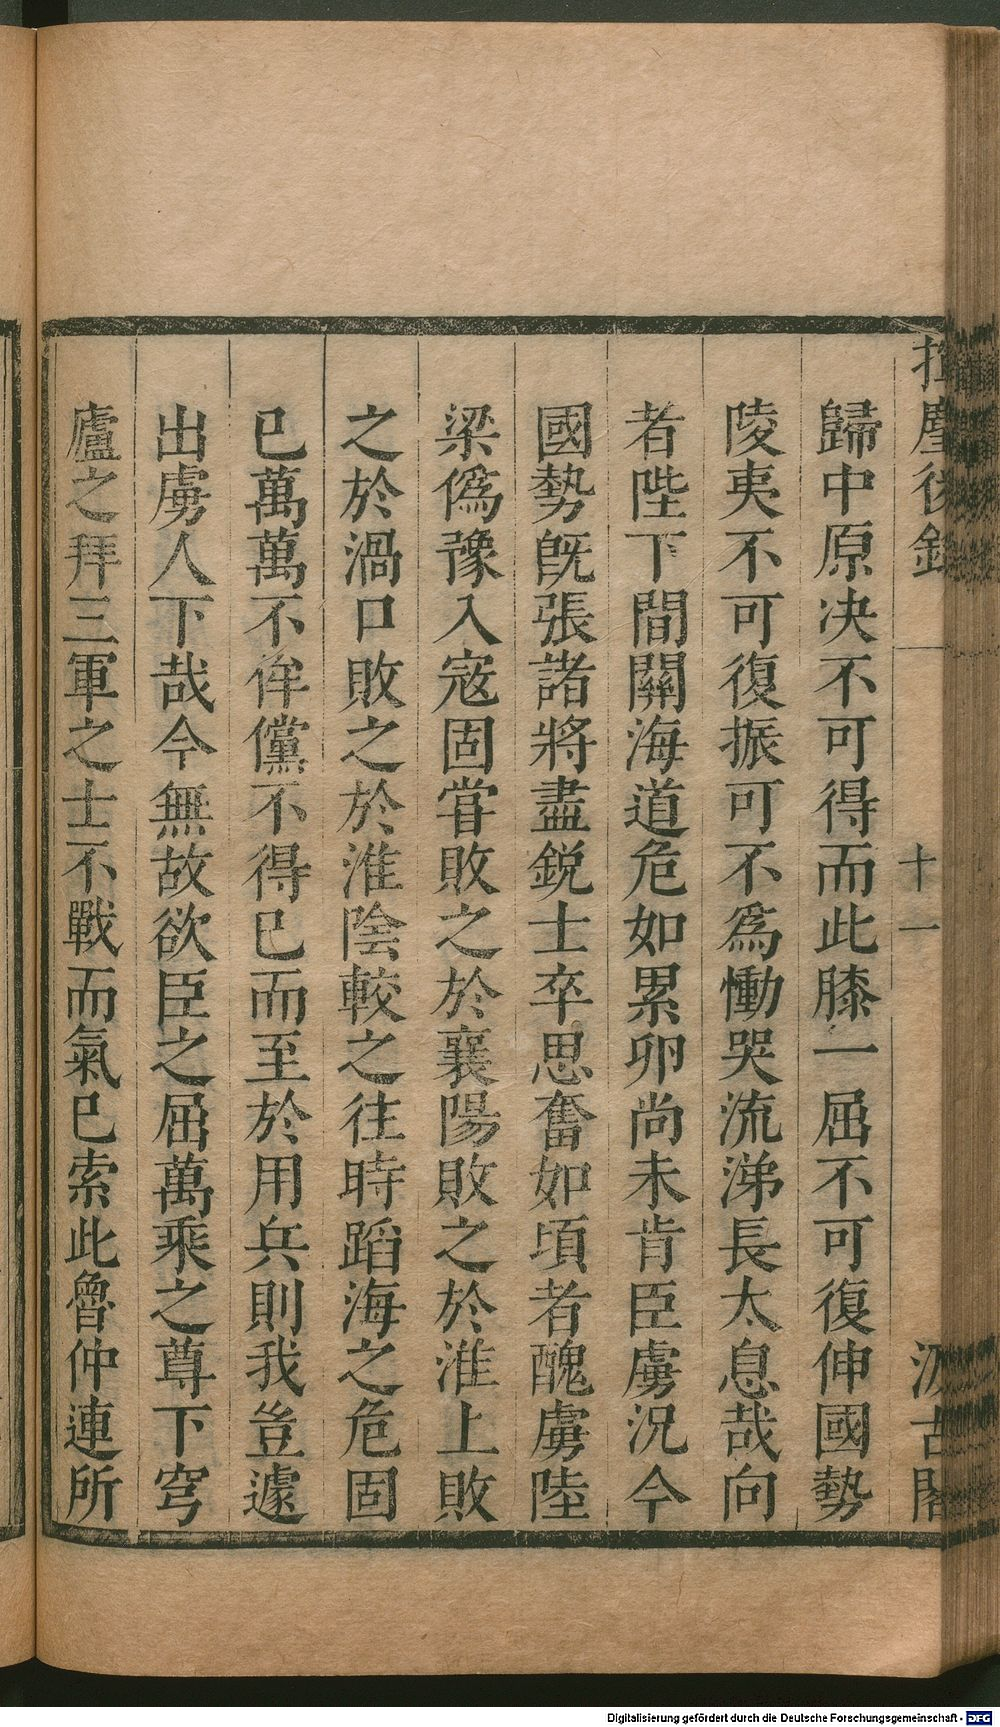 揮麈後錄 十一 汲古閣
歸中原决不可得而此膝一屈不可復伸國勢
陵夷不可復振可不爲慟哭流涕長太息哉向
者陛下間關海道危如累卵尚未肯臣虜況今
國勢旣張諸將盡銳士卒思奮如頃者醜虜陸
梁僞豫入寇固嘗敗之於襄陽敗之於淮上敗
之於渦口敗之於淮陰較之往時蹈海之危固
已萬萬不侔儻不得已而至於用兵則我豈遽
出虜人下哉今無故欲臣之屈萬乘之尊下穹
廬之拜三軍之士不戰而氣已索此魯仲連所
Digitalisierung gefördert durch die Deutsche Forschungsgemeinschaft - DFG